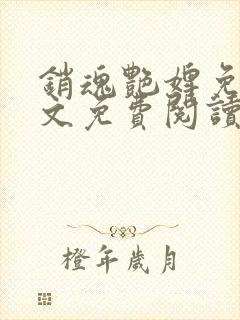 銷魂艷婢免
文免費閱讀
橙年歲月